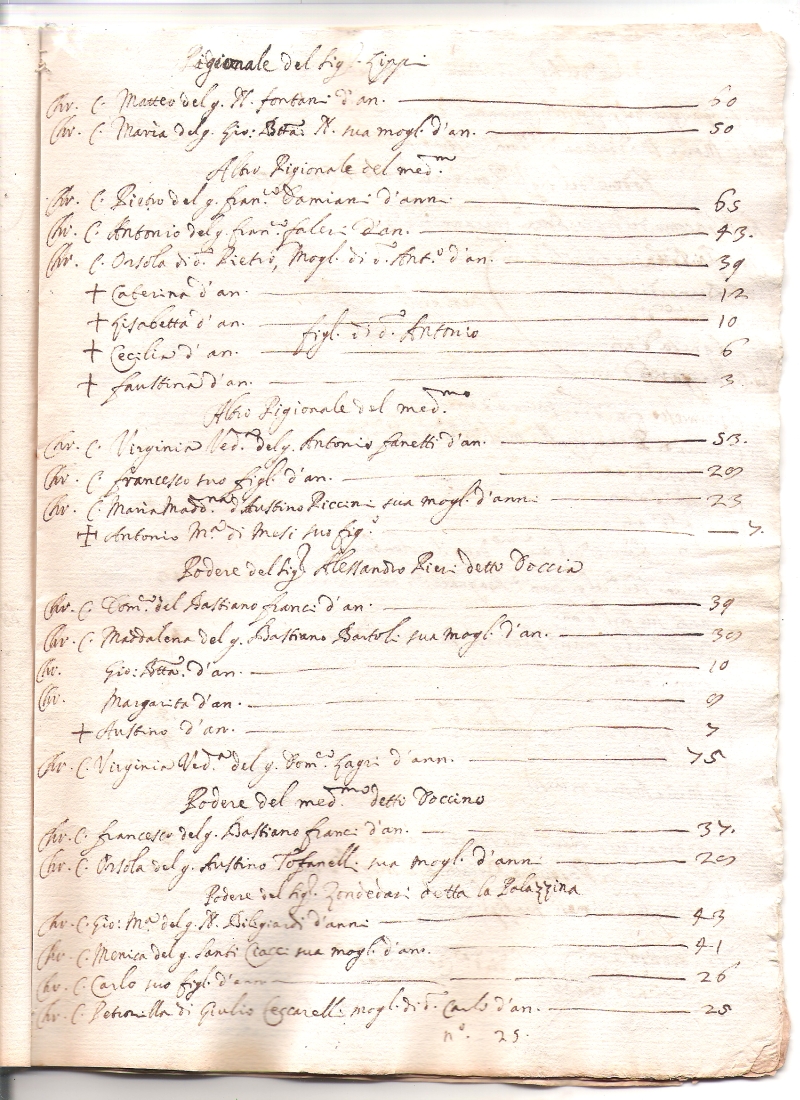 Pigionale del Sig.r Lippi
Chr. C. Matteo del q. N. fontani d'an. 60
Chr. C. Maria del q. Gio: Btta N. sua mogl. d'an. 50
Altro Pigionale del med.mo
Chr. C. Pietro del q. fran.co Damiani d'anni 65
Chr. C. Antonio del q. fran.co faleri d'an. 43.
Chr. C. Orsola di d.o Pietro, Mogl. di d.o Ant.o d'an. 39
+ Caterina d'an. 12
+ Lisabetta d'an. 10
figl. di d.o Antonio
+ Cecilia d'an. 6
+ faustina d'an. 3
Altro Pigionale del med.mo
Chr. C. Virginia Ved.a del q. Antonio fanetti d'an. 53.
Chr. C. francesco suo figl. d'an. 29
Chr. C. Maria Madd.na d'Austino Piccini sua mogl. d'anni 23
+ Antonio M.a di Mesi suo fig.o 7.
Podere del Sig.r Alessandro Pieri detto Doccia
Chr. C. Dom.co del Bastiano franci d'an. 39
Chr. C. Maddalena del q. Bastiano Bartoli sua mogl. d'an. 39
Chr. Gio: Btta d'an. 10
Chr. Margarita d'an. 9
+ Austino d'an. 7
Chr. C. Virginia Ved.a del q. Dom.co Lagri d'ann. 75
Podere del med.mo detto Doccino
Chr. C. francesco del q. Bastiano franci d'an. 37.
Chr. C. Orsola del q. Austino Tofanelli sua mogl. d'anni 29
Podere del Sig.r Zondedari detta la Palazzina
Chr. C. Gio: M.a del q. N. Biligiardi d'anni 43
Chr. C. Menica del q. Santi Ciacci sua mogl. d'an. 41
Chr. C. Carlo suo figl. d'anni 26
Chr. C. Petronilla di Giulio Ceccarelli mogl. di d.o Carlo d'an. 25
n.o 25.